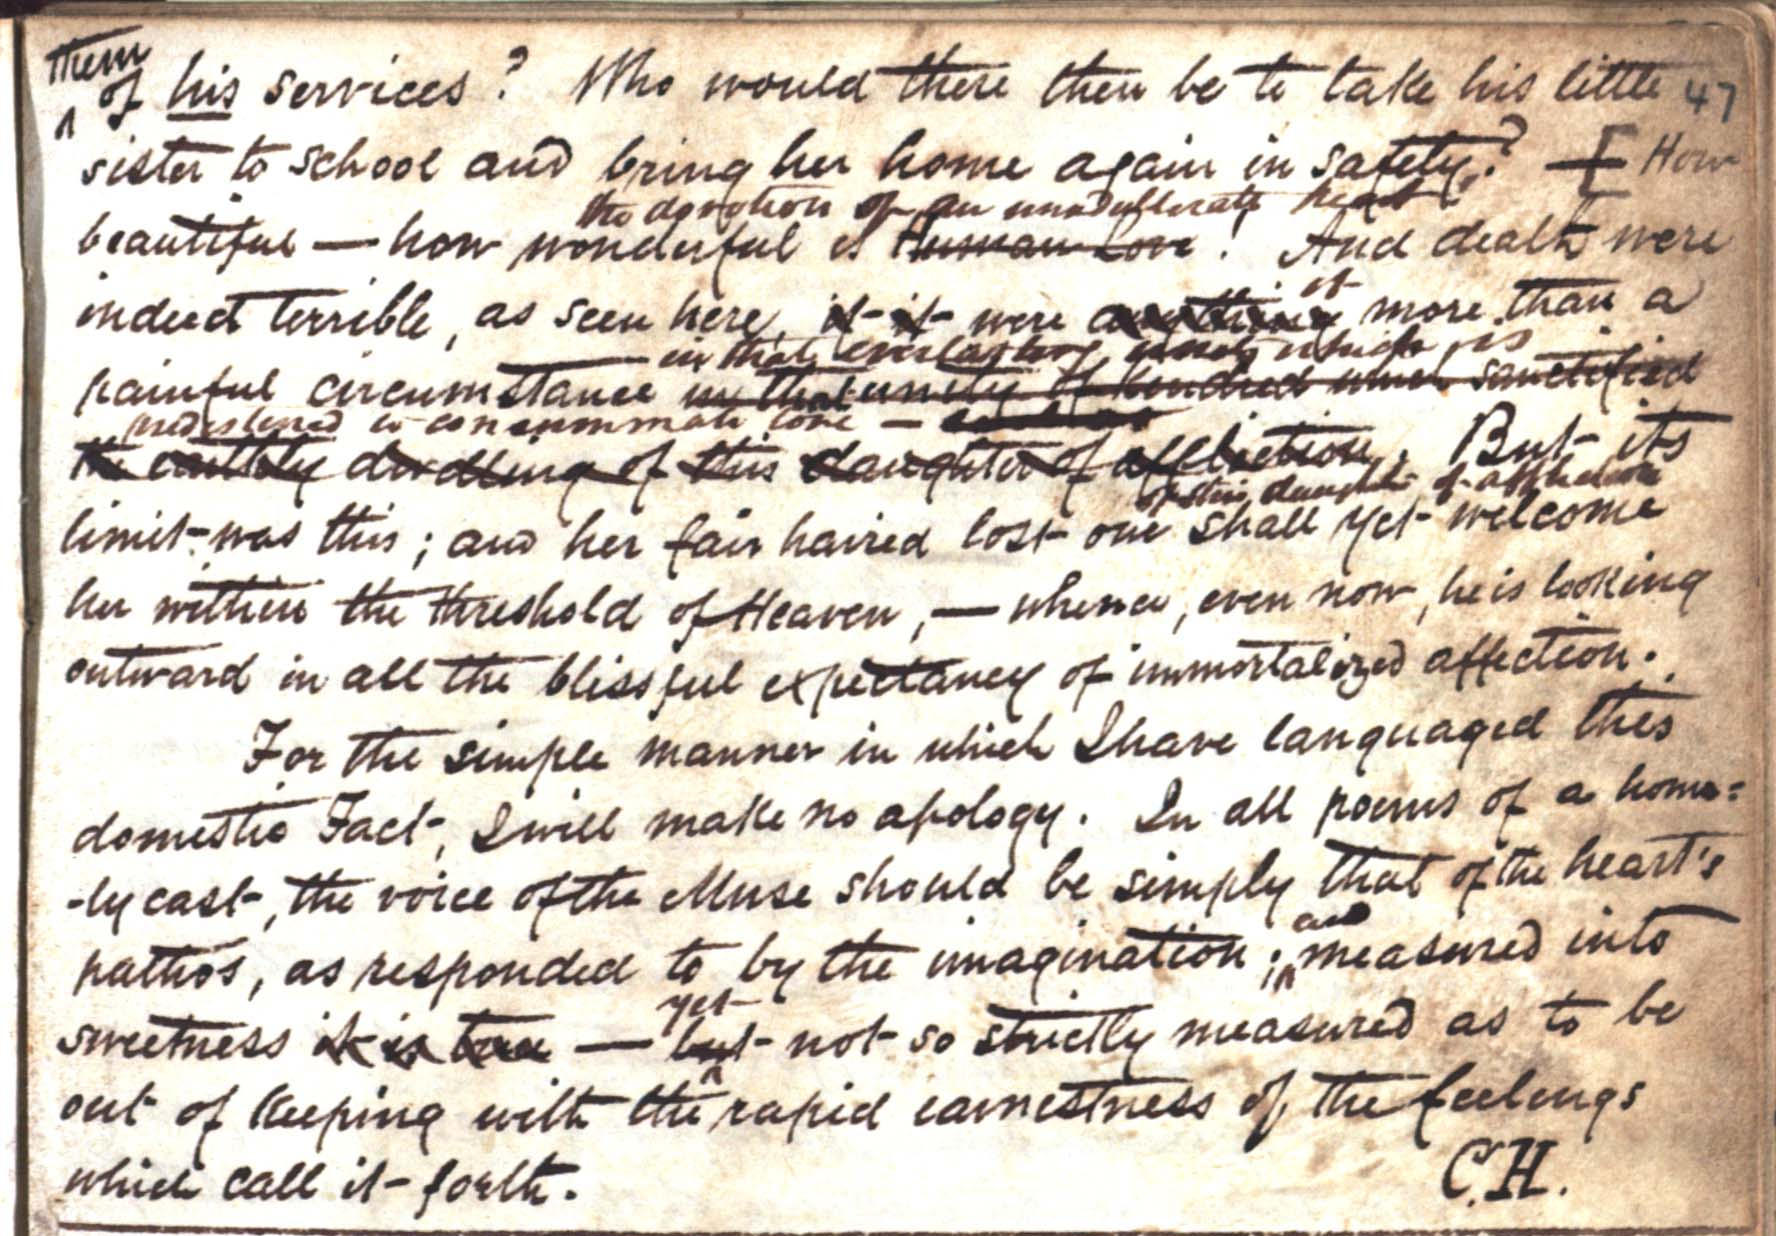 them
of his services? Who would there then be to take his little 47
sister to school and bring her home again in safety? — [ How
the devotion of an unadulterate heart
beautiful — how wonderful is Human Love! And death were
it
indeed terrible, as seen here, it it were anything more than a
in that everlasting which is
painful circumstance in that unity of kindred when sanctified
predestined to consummate love —
the earthly dwelling of this daughter of affliction. But its
of this daughter of affliction
limit was this; and her fair haired lost one shall yet welcome
her within the threshold of Heaven, — whence, even now, he is looking
outward in all the blissful expectancy of immortalized affection.
For the simple manner in which I have languaged this
domestic Fact, I will make no apology. In all poems of a home=
-ly cast, the voice of the Muse should be simply that of the heart's
and
pathos, as responded to by the imagination; measured into
yet
sweetness it is true — but not so strictly measured as to be
out of keeping with the rapid earnestness of the feelings
which call it forth. C.H.